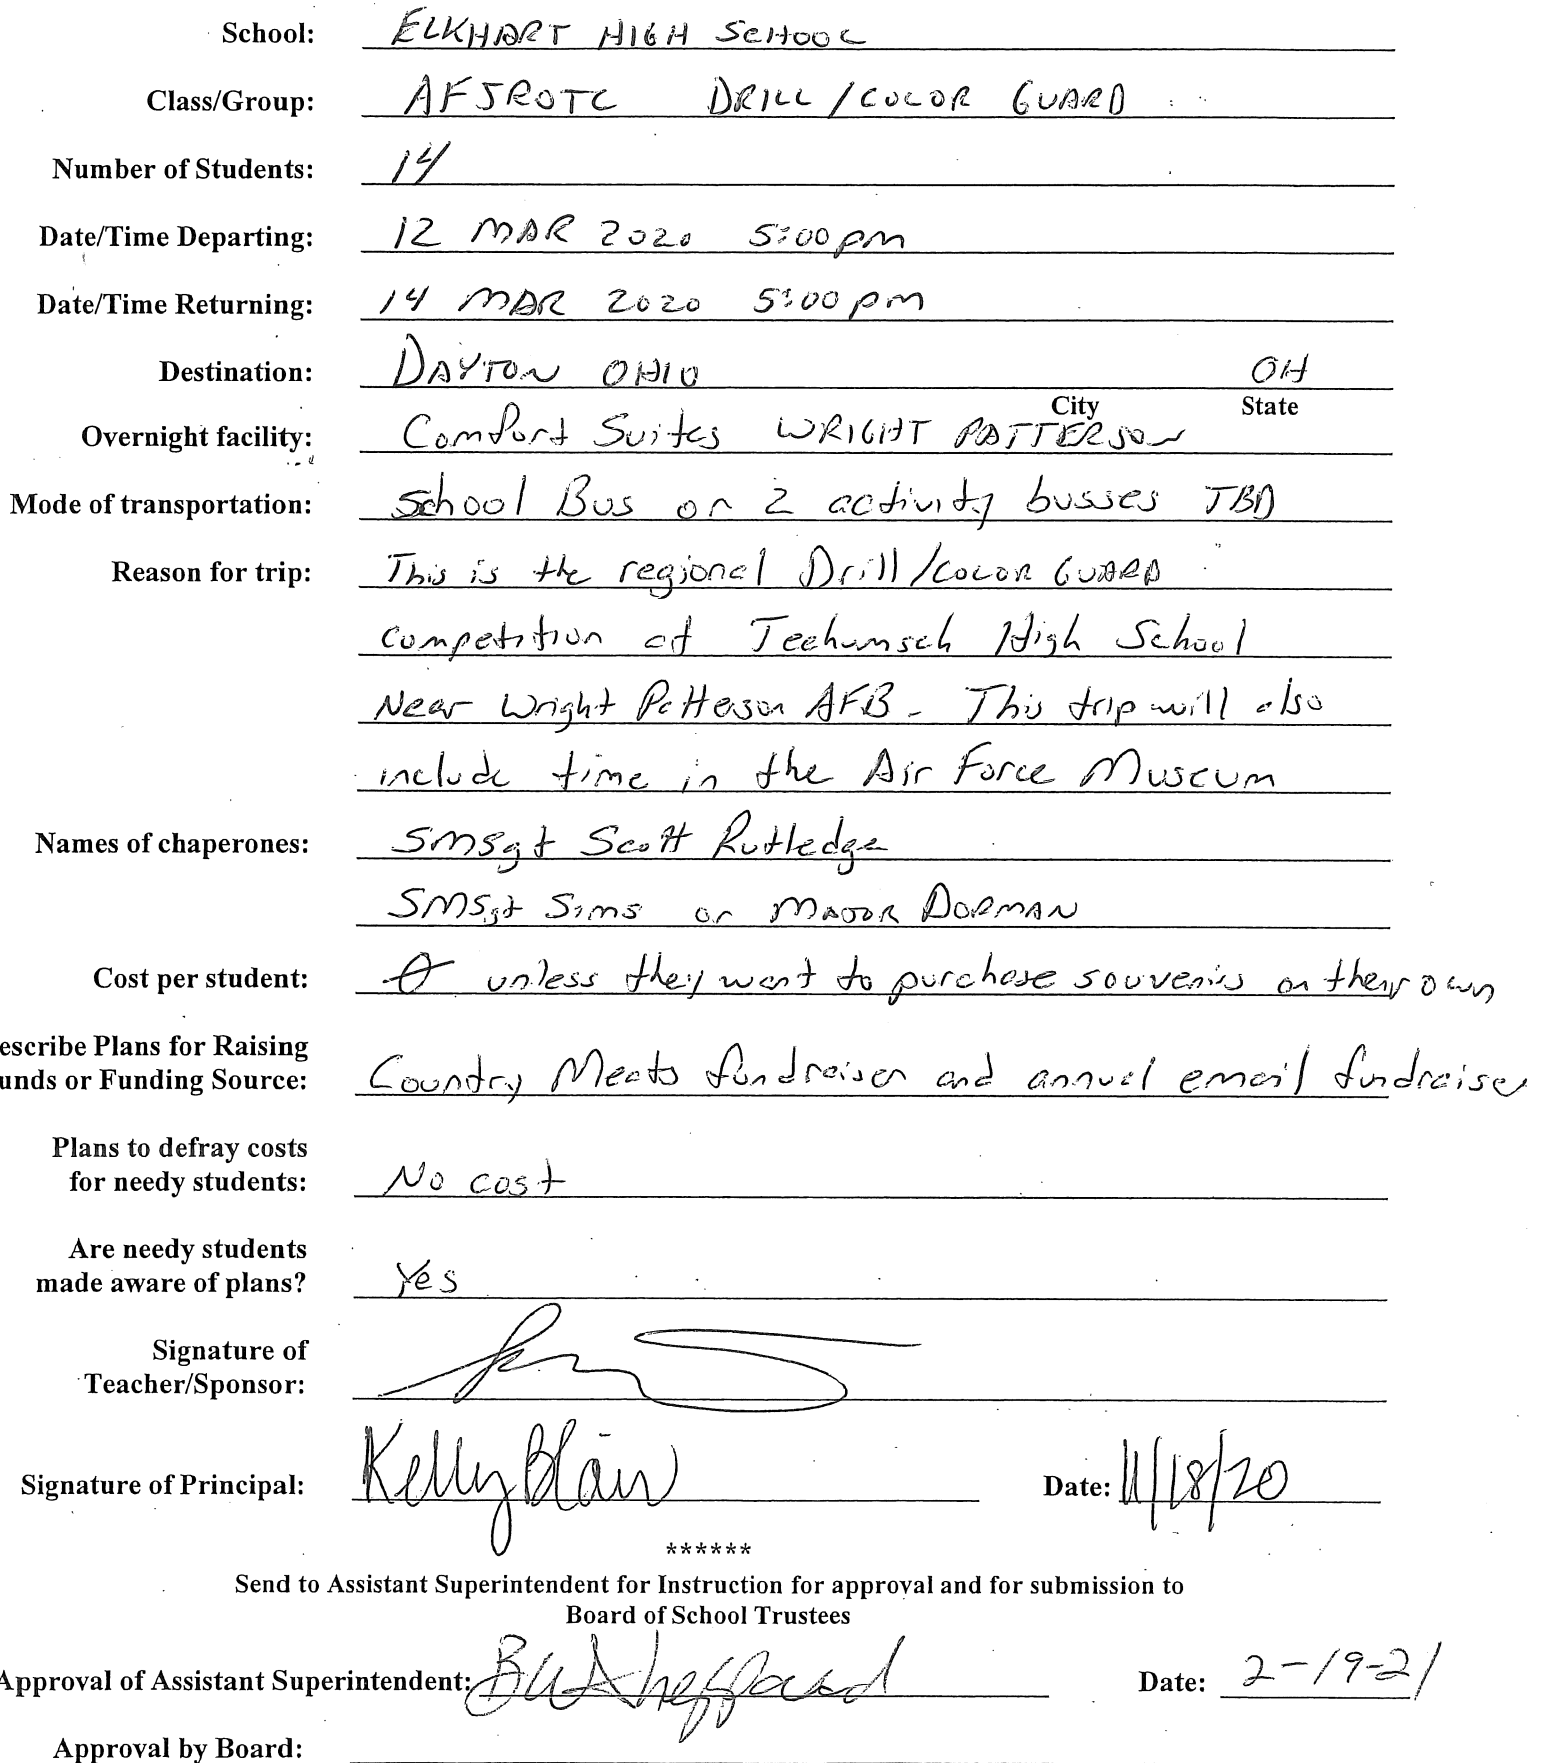 School: ELKHART HIGH SCHOOL
Class/Group: AFJROTC DRILL/COLOR GUARD
Number of Students: 14
Date/Time Departing: 12 MAR 2020 5:00pm
Date/Time Returning: 14 MAR 2020 5:00pm
Destination: DAYTON OHIO OH
City State
Overnight facility: Comfort Suites WRIGHT PATTERSON
Mode of transportation: School Bus or 2 activity busses TBD
Reason for trip: This is the regional Drill/COLOR GUARD
competition at Teehumseh High School
Near Wright Patterson AFB. This trip will also
include time in the Air Force Museum
Names of chaperones: SMSgt Scott Rutledge
SMSgt Sims or MAJOR DORMAN
Cost per student: 0 unless they want to purchase souvenirs on their own
escribe Plans for Raising
unds or Funding Source: Country Meats fundraiser and annual email fundraiser
Plans to defray costs
for needy students: No cost
Are needy students
made aware of plans? Yes
Signature of
Teacher/Sponsor:
Signature of Principal: Kelly Blair Date: 11/18/20
******
Send to Assistant Superintendent for Instruction for approval and for submission to
Board of School Trustees
Approval of Assistant Superintendent: Sheppard Date: 2-19-21
Approval by Board: